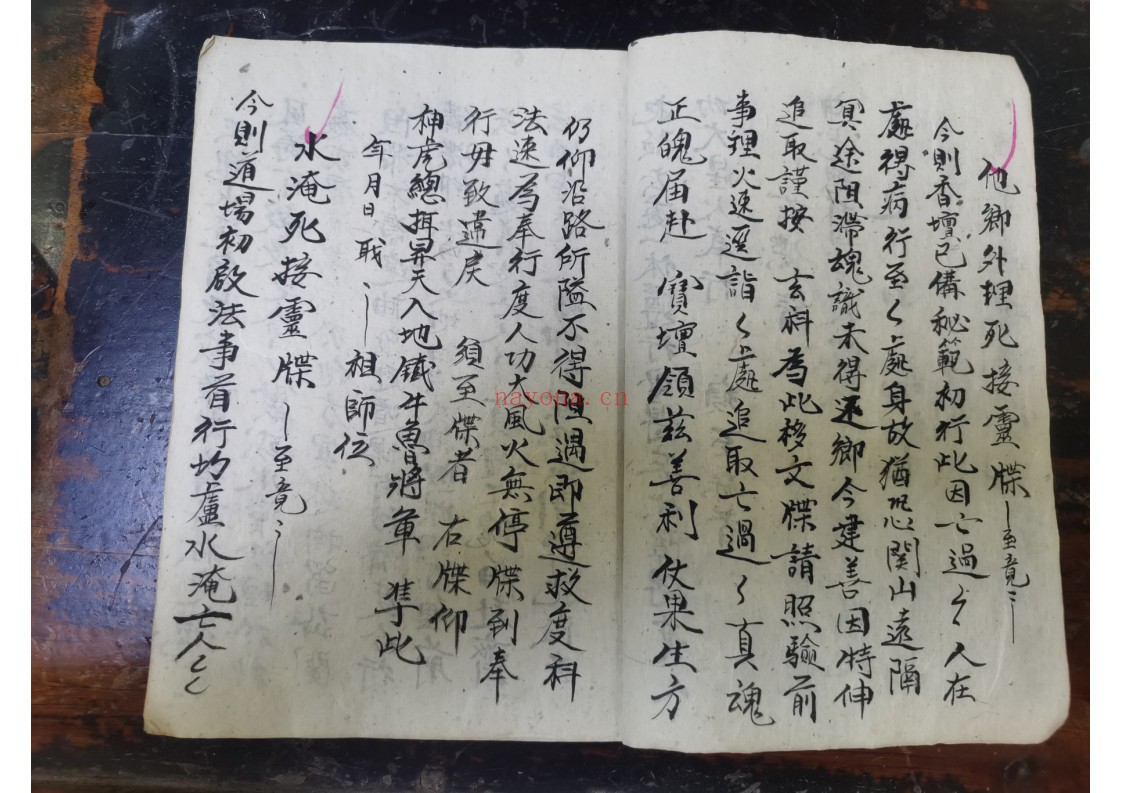 他鄉外理死接靈牒 至竟
今則香壇已備秘範初行此因亡過〻人在
處得病行至〻處身故猶恐関山遠隔
冥途阻滯魂識未得还鄉今建善因特伸
追取謹按 玄科為此移文牒請照驗前
事理火速逕詣〻處追取亡過〻真魂
正魄届赴 寳壇領兹善利仗果生方
仍仰沿路所隘不得阻遏即遵救度科
法速為奉行度人功大風火無停牒到奉
行毋致違戾 須至牒者 右牒仰
神虎總攝昇天入地鐵牛魯將軍 準此
年月日 祖師位
水淹死接靈牒 至竟
今則道場初啟法事首行切慮水淹亡人〻
nayona.cn